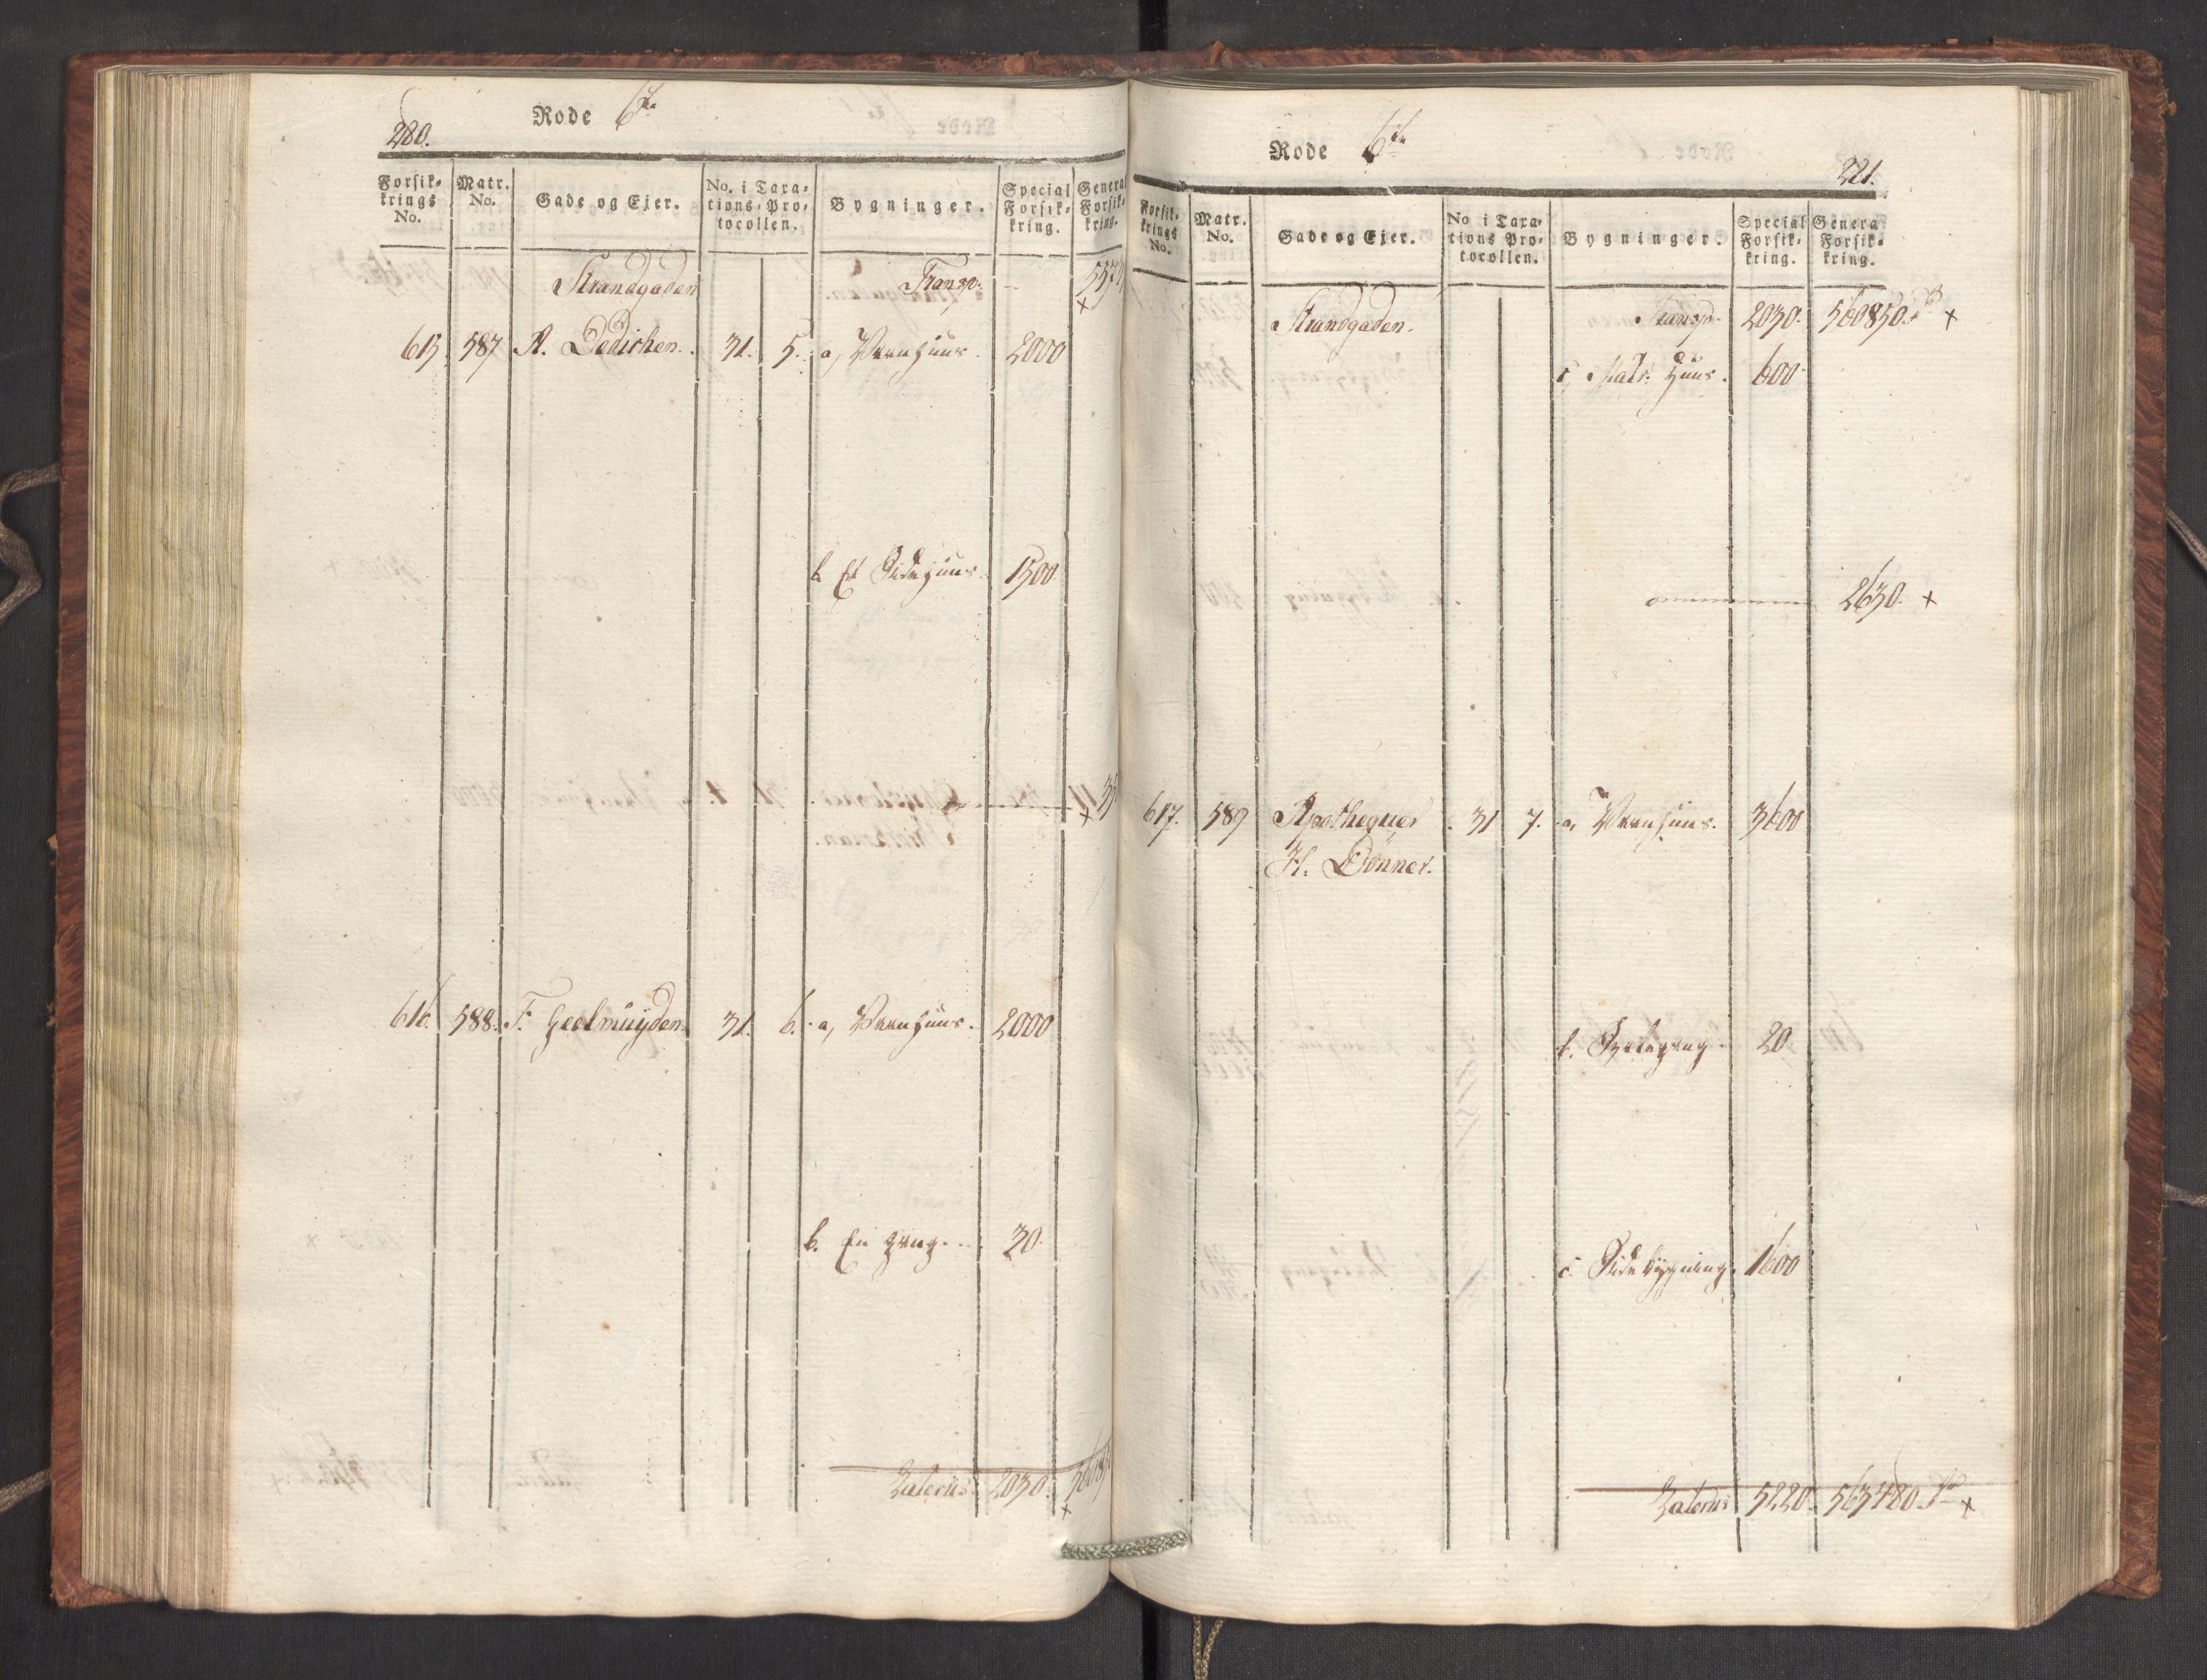 280.
Rode 6te
Forsik-
krings
No.
Matr.
No.
Gade og Ejer.
No. i Taxa-
tions-Pro-
tocollen.
Bygninger.
Special
Forsik-
kring.
General
Forsik-
kring.
Strandgaden Transp.
615. 587 A. Dedichen. 31. 5. a, Vaanhuus. 2000
b. Et Sidehuus 1500
616. 588. F. Geelmuyden. 31. 6. a, Vaanhuus. 2000
b. En gang. 30.
Laterus 2030.
Rode 6te
221.
Forsik-
krings
No.
Matr.
No.
Gade og Ejer.
No i Taxa-
tions Pro-
tocollen.
Bygninger.
Special
Forsik-
kring.
Genera
Forsik-
kring.
Strandgaden. Transp. 2030. 560850. x
c, Huus. 600
2630. x
617. 589 Apothequer 31 7. a, Vaanhuus. 3600
H. Dønner.
b. Svalegang 20.
c. Sidebygning. 1600
Laterus 5220. 563480 x